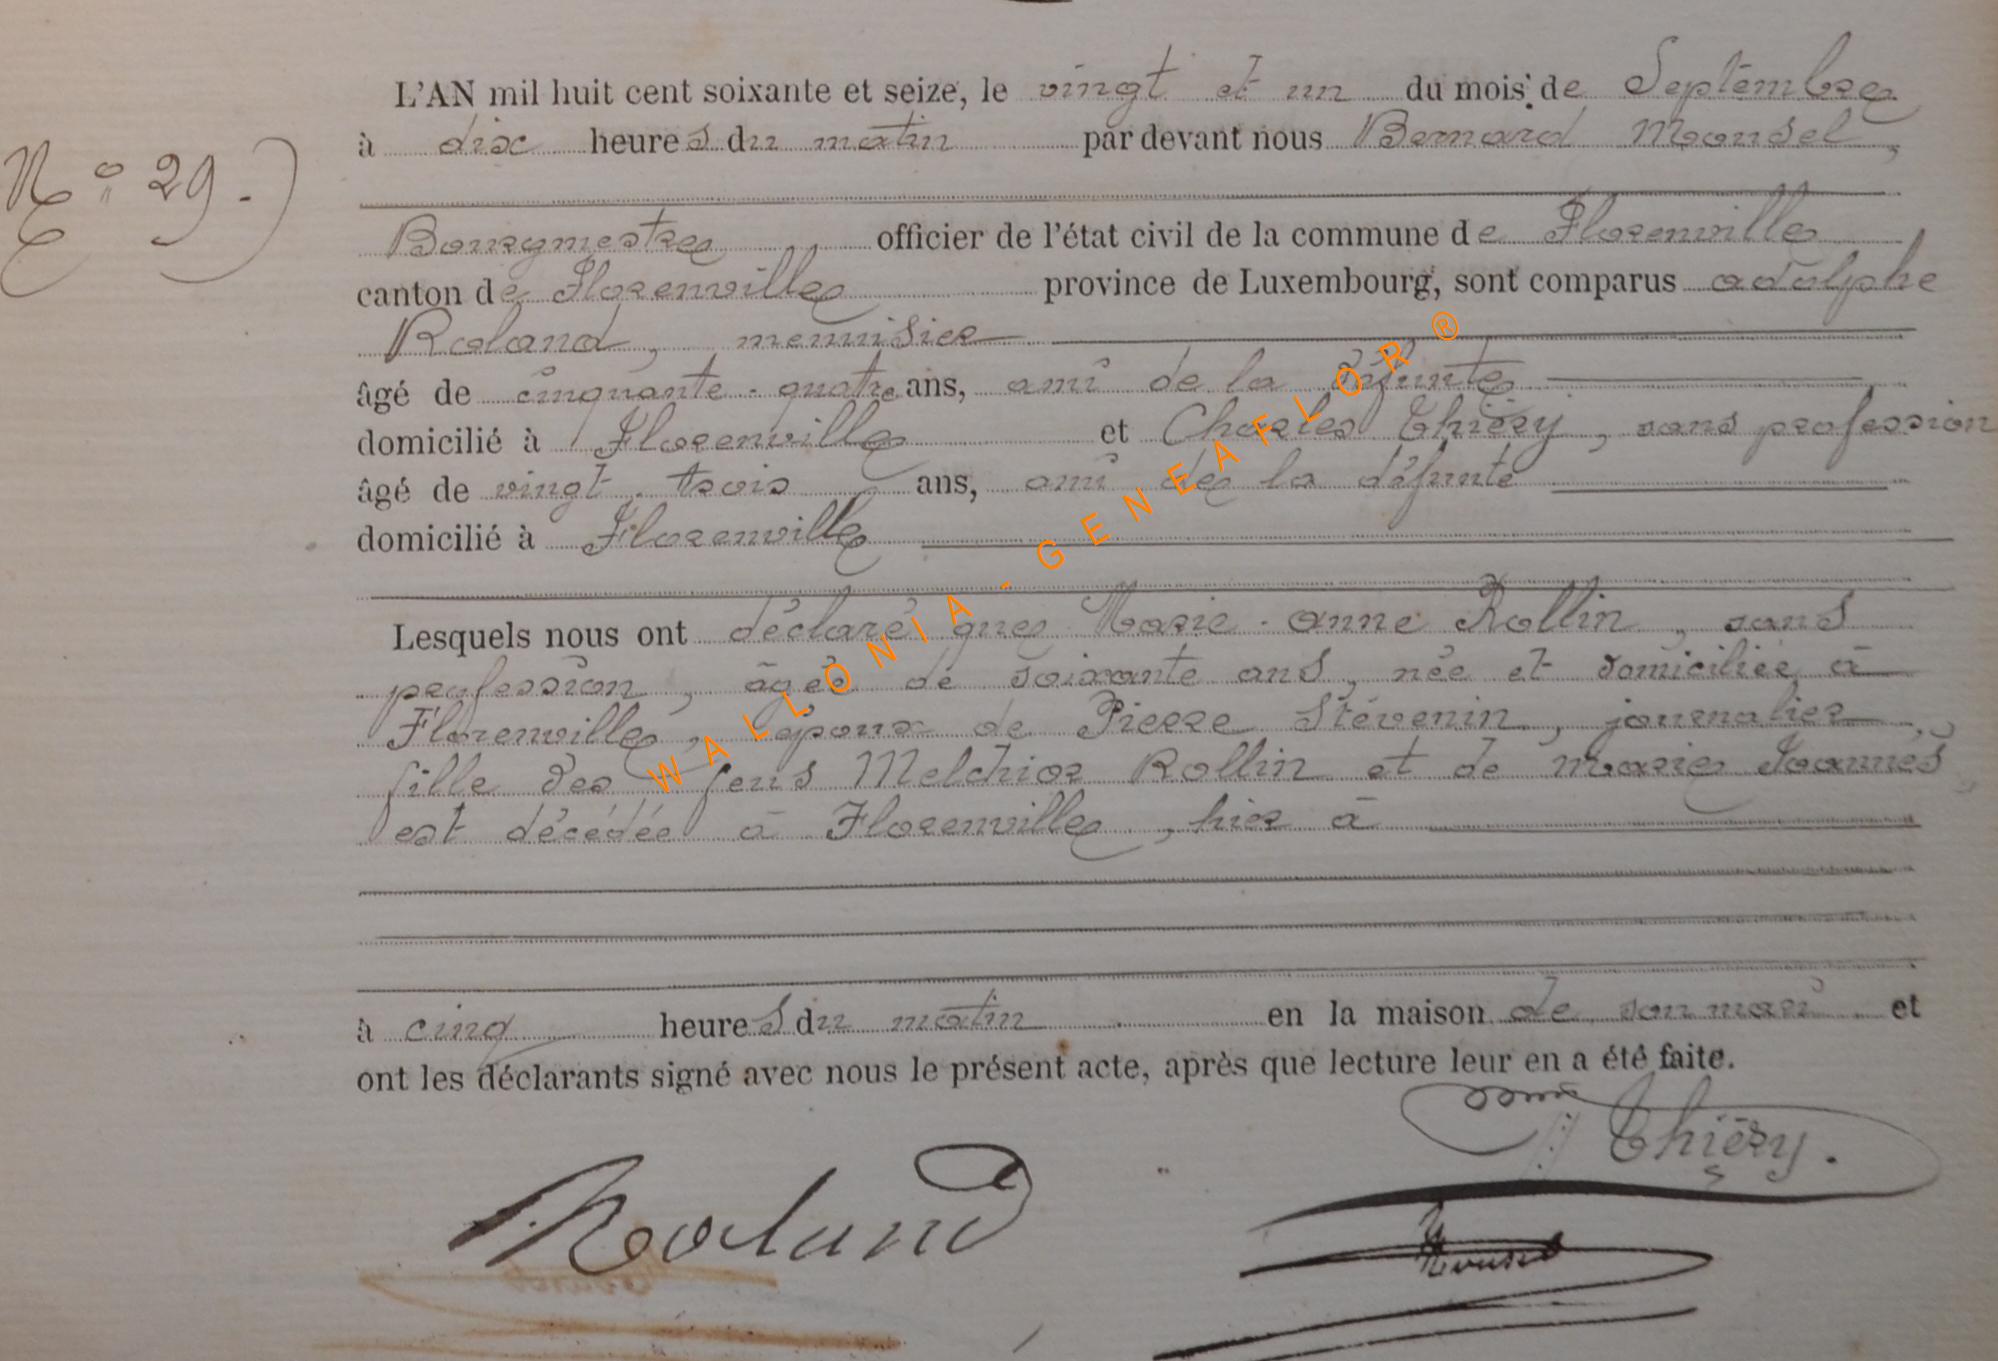 L'AN mil huit cent soixante et seize, le vingt et un du mois de Septembre
à dix heures du matin par devant nous Bernard Mousel,
N° 29.
Bourgmestre officier de l'état civil de la commune de Florenville
canton de Florenville province de Luxembourg, sont comparus adolphe
Roland, menuisier
âgé de cinquante-quatre ans, ami de la défunte
domicilié à Florenville et Charles Thiéry, sans profession
âgé de vingt-trois ans, ami de la défunte
domicilié à Florenville
Lesquels nous ont déclaré que Marie-anne Rollin, sans
profession, âgée de soixante ans, née et domiciliée à
Florenville, épouse de Pierre Stévenin, journalier,
fille des feus Melchior Rollin et de marie Joannes
est décédée à Florenville, hier à
à cinq heures du matin en la maison de son mari et
ont les déclarants signé avec nous le présent acte, après que lecture leur en a été faite.
Thiéry.
Roland
Mousel
WALLONIA - GENEAFLOR ®